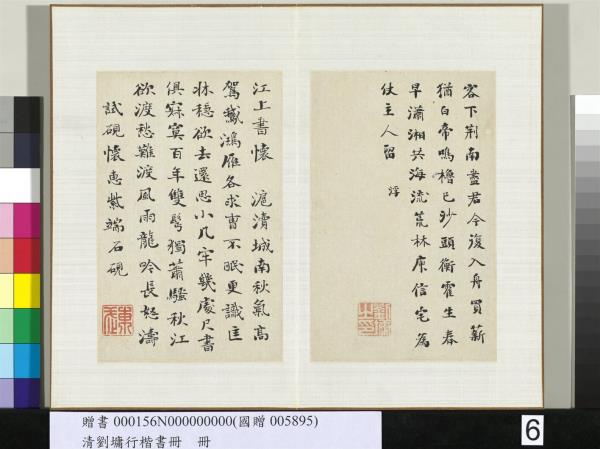 客下荆南盡君今復入舟買薪
猶白帝鳴櫓已沙頭衡霍生春
早瀟湘共海流荒林庾信宅為
仗主人留 浮
江上書懷 滬瀆城南秋氣高
駕鵞鴻雁各求曹不眠更識匡
牀穩欲去還思小几牢幾處尺書
俱寂寞百年雙鬢獨蕭騷秋江
欲渡愁難渡風雨龍吟長怒濤
試硯懷惠紫端石硯
贈書 000156N000000000(國贈 005895)
清劉墉行楷書冊 冊
6